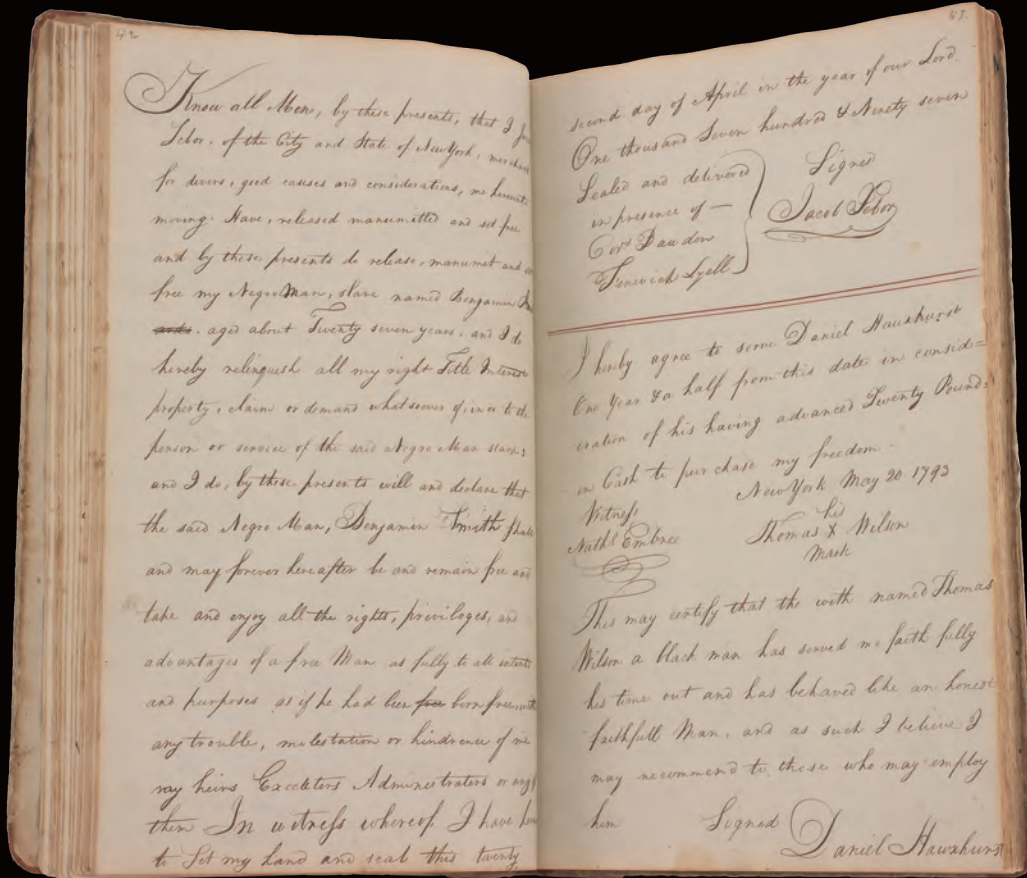 42
Know all Men, by these presents, that I
Sebor, of the City and State of New York,
for divers, good causes and considerations, me
moving. Have, released manumitted and set free
and by these presents do release, manumit and
free my Negro Man, slave named Benjamin
aged about Twenty seven years, and I do
hereby relinquish all my right Title Interest
property, claim or demand whatsoever of, in or to the
person or service of the said Negro Man slave,
and I do, by these presents will and declare that
the said Negro Man, Benjamin Smith shall
and may forever hereafter be and remain free and
take and enjoy all the rights, priviloges, and
advantages of a free Man as fully to all intents
and purposes as if he had been free born free,
any trouble, molestation or hindrence of me
my heirs Executors Administrators or any
them In witness whereof I have
to Set my hand and seal this twenty
43.
second day of April in the year of our Lord
One thousand Seven hundred & Ninety seven
Sealed and delivered
in presence of —
Signed
Jacob Sebor
Lyell
I hereby agree to serve Daniel Hawxhurst
One Year & a half from this date in consid=
eration of his having advanced Twenty Pounds
in Cash to purchase my freedom.
New York May 20 1793
Witness
Nathl Embree
his
Thomas X Wilson
Mark
This may certify that the with named Thomas
Wilson a black man has served me faith fully
his time out and has behaved like an honest
faithfull Man, and as such I believe I
may recommend to those who may employ
him Signed
Daniel Hawxhurst